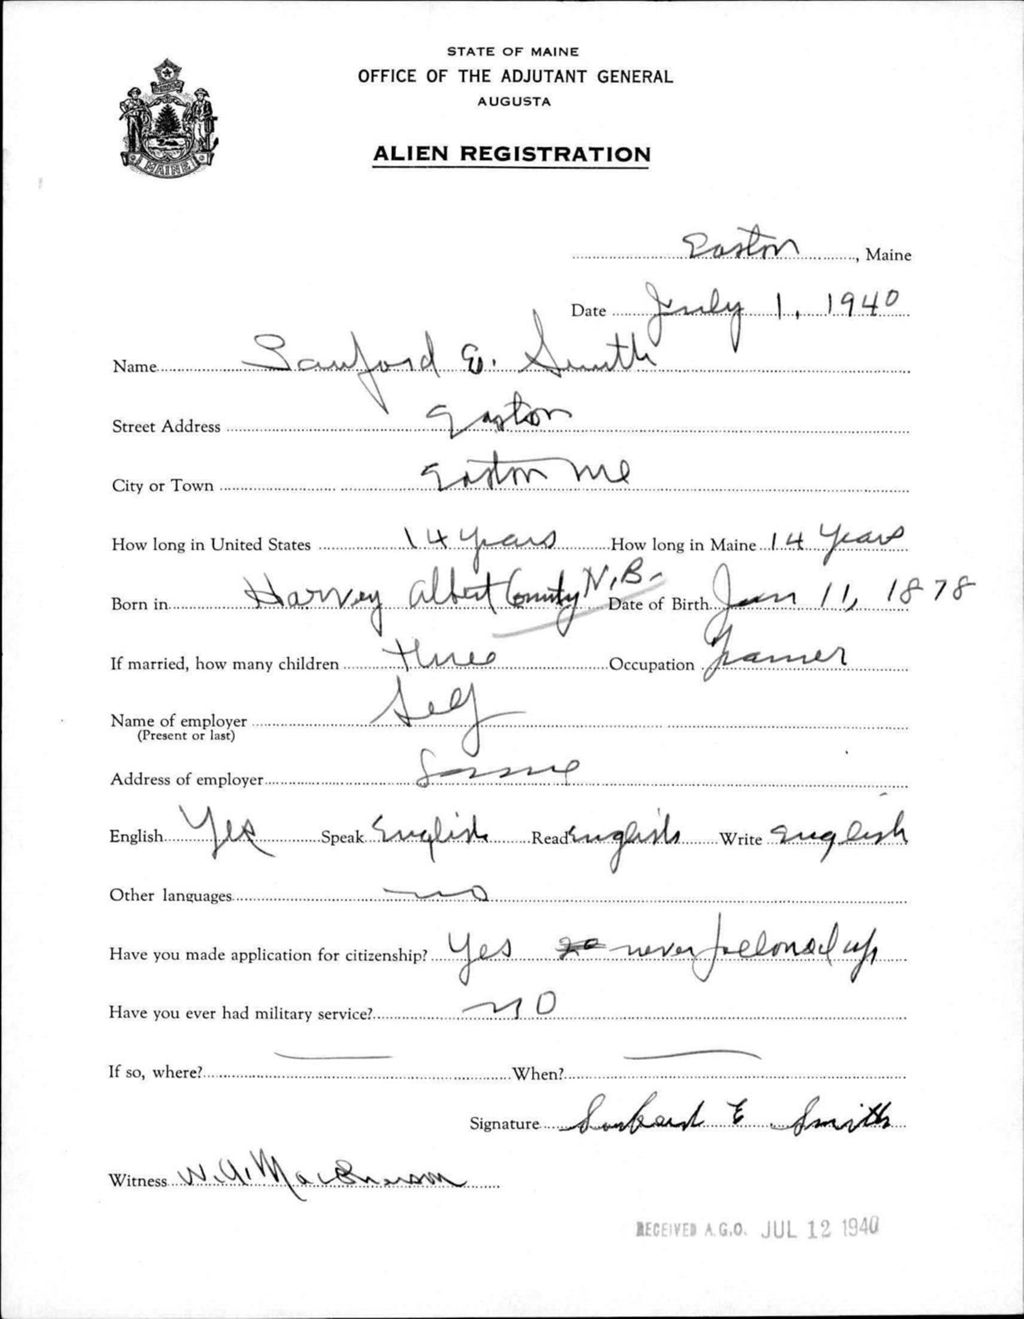 STATE OF MAINE
OFFICE OF THE ADJUTANT GENERAL
AUGUSTA
ALIEN REGISTRATION
MAINE
Easton, Maine
Date July 1, 1940
Name Sanford E. Smith
Street Address Easton
City or Town Easton Me
How long in United States 14 years How long in Maine 14 Years
Born in Harvey Albert County N.B. Date of Birth Jan 11, 1878
If married, how many children three Occupation Framer
Name of employer Self
(Present or last)
Address of employer Same
English Yes Speak English Read English Write English
Other languages no
Have you made application for citizenship? Yes never followed up
Have you ever had military service? no
If so, where? — When? —
Signature E Smith
Witness W.A.
RECEIVED A.G.O. JUL 12 1940